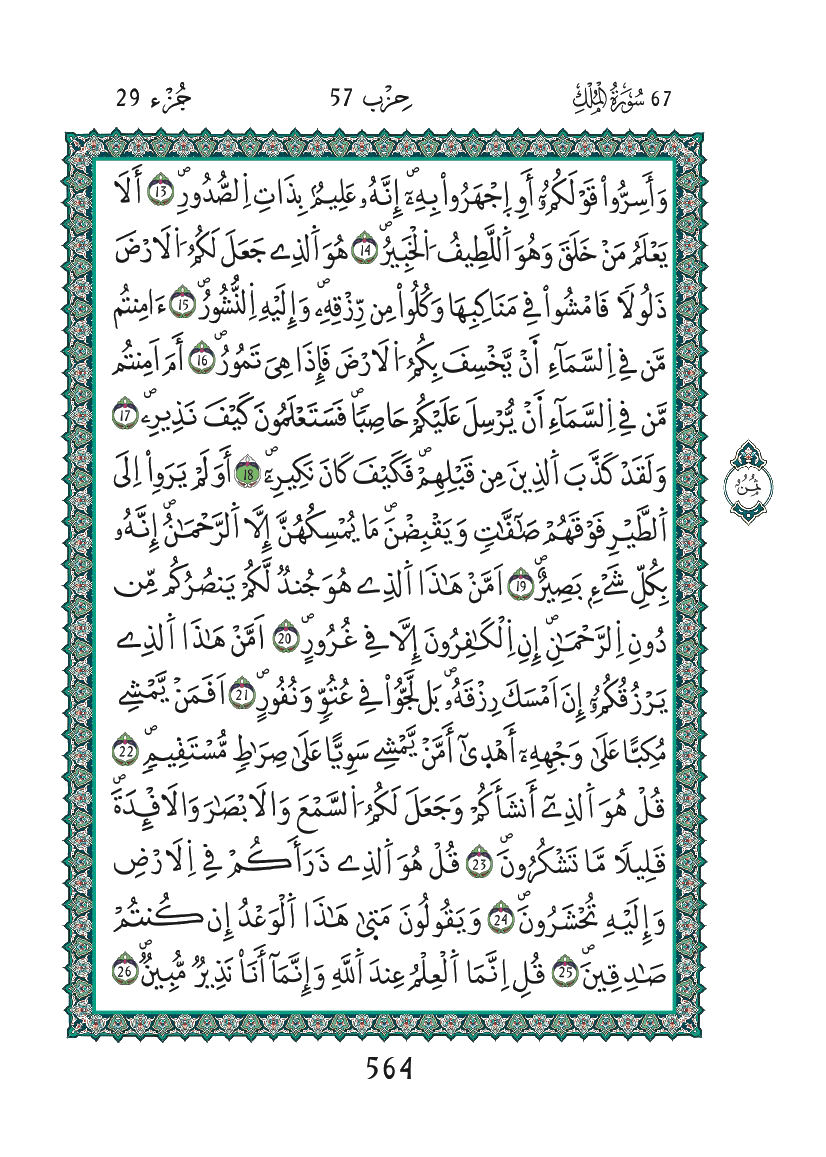 67 سُورَةُ الْمُلْكِ حِزْب 57 جُزْء 29
وَأَسِرُّواْ قَوْلَكُمُۥٓ أَوِ اِجْهَرُواْ بِهِۦٓۖ إِنَّهُۥ عَلِيمُۢ بِذَاتِ اِ۬لصُّدُورِۖ 13 أَلَا
يَعْلَمُ مَنْ خَلَقَ وَهُوَ اَ۬للَّطِيفُ اُ۬لْخَبِيرُۖ 14 هُوَ اَ۬لذِے جَعَلَ لَكُمُ اُ۬لَارْضَ
ذَلُولاٗ فَامْشُواْ فِے مَنَاكِبِهَا وَكُلُواْ مِن رِّزْقِهِۦۖ وَإِلَيْهِ اِ۬لنُّشُورُۖ 15 ءَٰامِنتُم
مَّن فِے اِ۬لسَّمَآءِ اَنْ يَّخْسِفَ بِكُمُ اُ۬لَارْضَ فَإِذَا هِيَ تَمُورُۖ 16 أَمَ اَمِنتُم
مَّن فِے اِ۬لسَّمَآءِ اَنْ يُّرْسِلَ عَلَيْكُمْ حَاصِباٗۖ فَسَتَعْلَمُونَ كَيْفَ نَذِيرِۦۖ 17
وَلَقَدْ كَذَّبَ اَ۬لذِينَ مِن قَبْلِهِمْۖ فَكَيْفَ كَانَ نَكِيرِۦٓۖ 18 أَوَلَمْ يَرَوِاْ اِلَى
اَ۬لطَّيْرِ فَوْقَهُمْ صَٰٓفَّٰتٖ وَيَقْبِضْنَۖ مَا يُمْسِكُهُنَّ إِلَّا اَ۬لرَّحْمَٰنُۖ إِنَّهُۥ
بِكُلِّ شَےْءِۢ بَصِيرٌۖ 19 اَمَّنْ هَٰذَا اَ۬لذِے هُوَ جُندٞ لَّكُمْ يَنصُرُكُم مِّن
دُونِ اِ۬لرَّحْمَٰنِۖ إِنِ اِ۬لْكَٰفِرُونَ إِلَّا فِے غُرُورٍۖ 20 اَمَّنْ هَٰذَا اَ۬لذِے
يَرْزُقُكُمُۥٓ إِنَ اَمْسَكَ رِزْقَهُۥۖ بَل لَّجُّواْ فِے عُتُوّٖ وَنُفُورٍۖ 21 اَفَمَنْ يَّمْشِے
مُكِبّاً عَلَىٰ وَجْهِهِۦٓ أَهْدَىٰٓ أَمَّنْ يَّمْشِے سَوِيّاً عَلَىٰ صِرَٰطٖ مُّسْتَقِيمٖۖ 22
قُلْ هُوَ اَ۬لذِےٓ أَنشَأَكُمْ وَجَعَلَ لَكُمُ اُ۬لسَّمْعَ وَالَابْصَٰرَ وَالَافْـِٕدَةَۖ
قَلِيلاٗ مَّا تَشْكُرُونَۖ 23 قُلْ هُوَ اَ۬لذِے ذَرَأَكُمْ فِے اِ۬لَارْضِ
وَإِلَيْهِ تُحْشَرُونَۖ 24 وَيَقُولُونَ مَتَىٰ هَٰذَا اَ۬لْوَعْدُ إِن كُنتُمْ
صَٰدِقِينَۖ 25 قُلِ اِنَّمَا اَ۬لْعِلْمُ عِندَ اَ۬للَّهِ وَإِنَّمَآ أَنَا۠ نَذِيرٞ مُّبِينٞۖ 26
ثُمُن
564